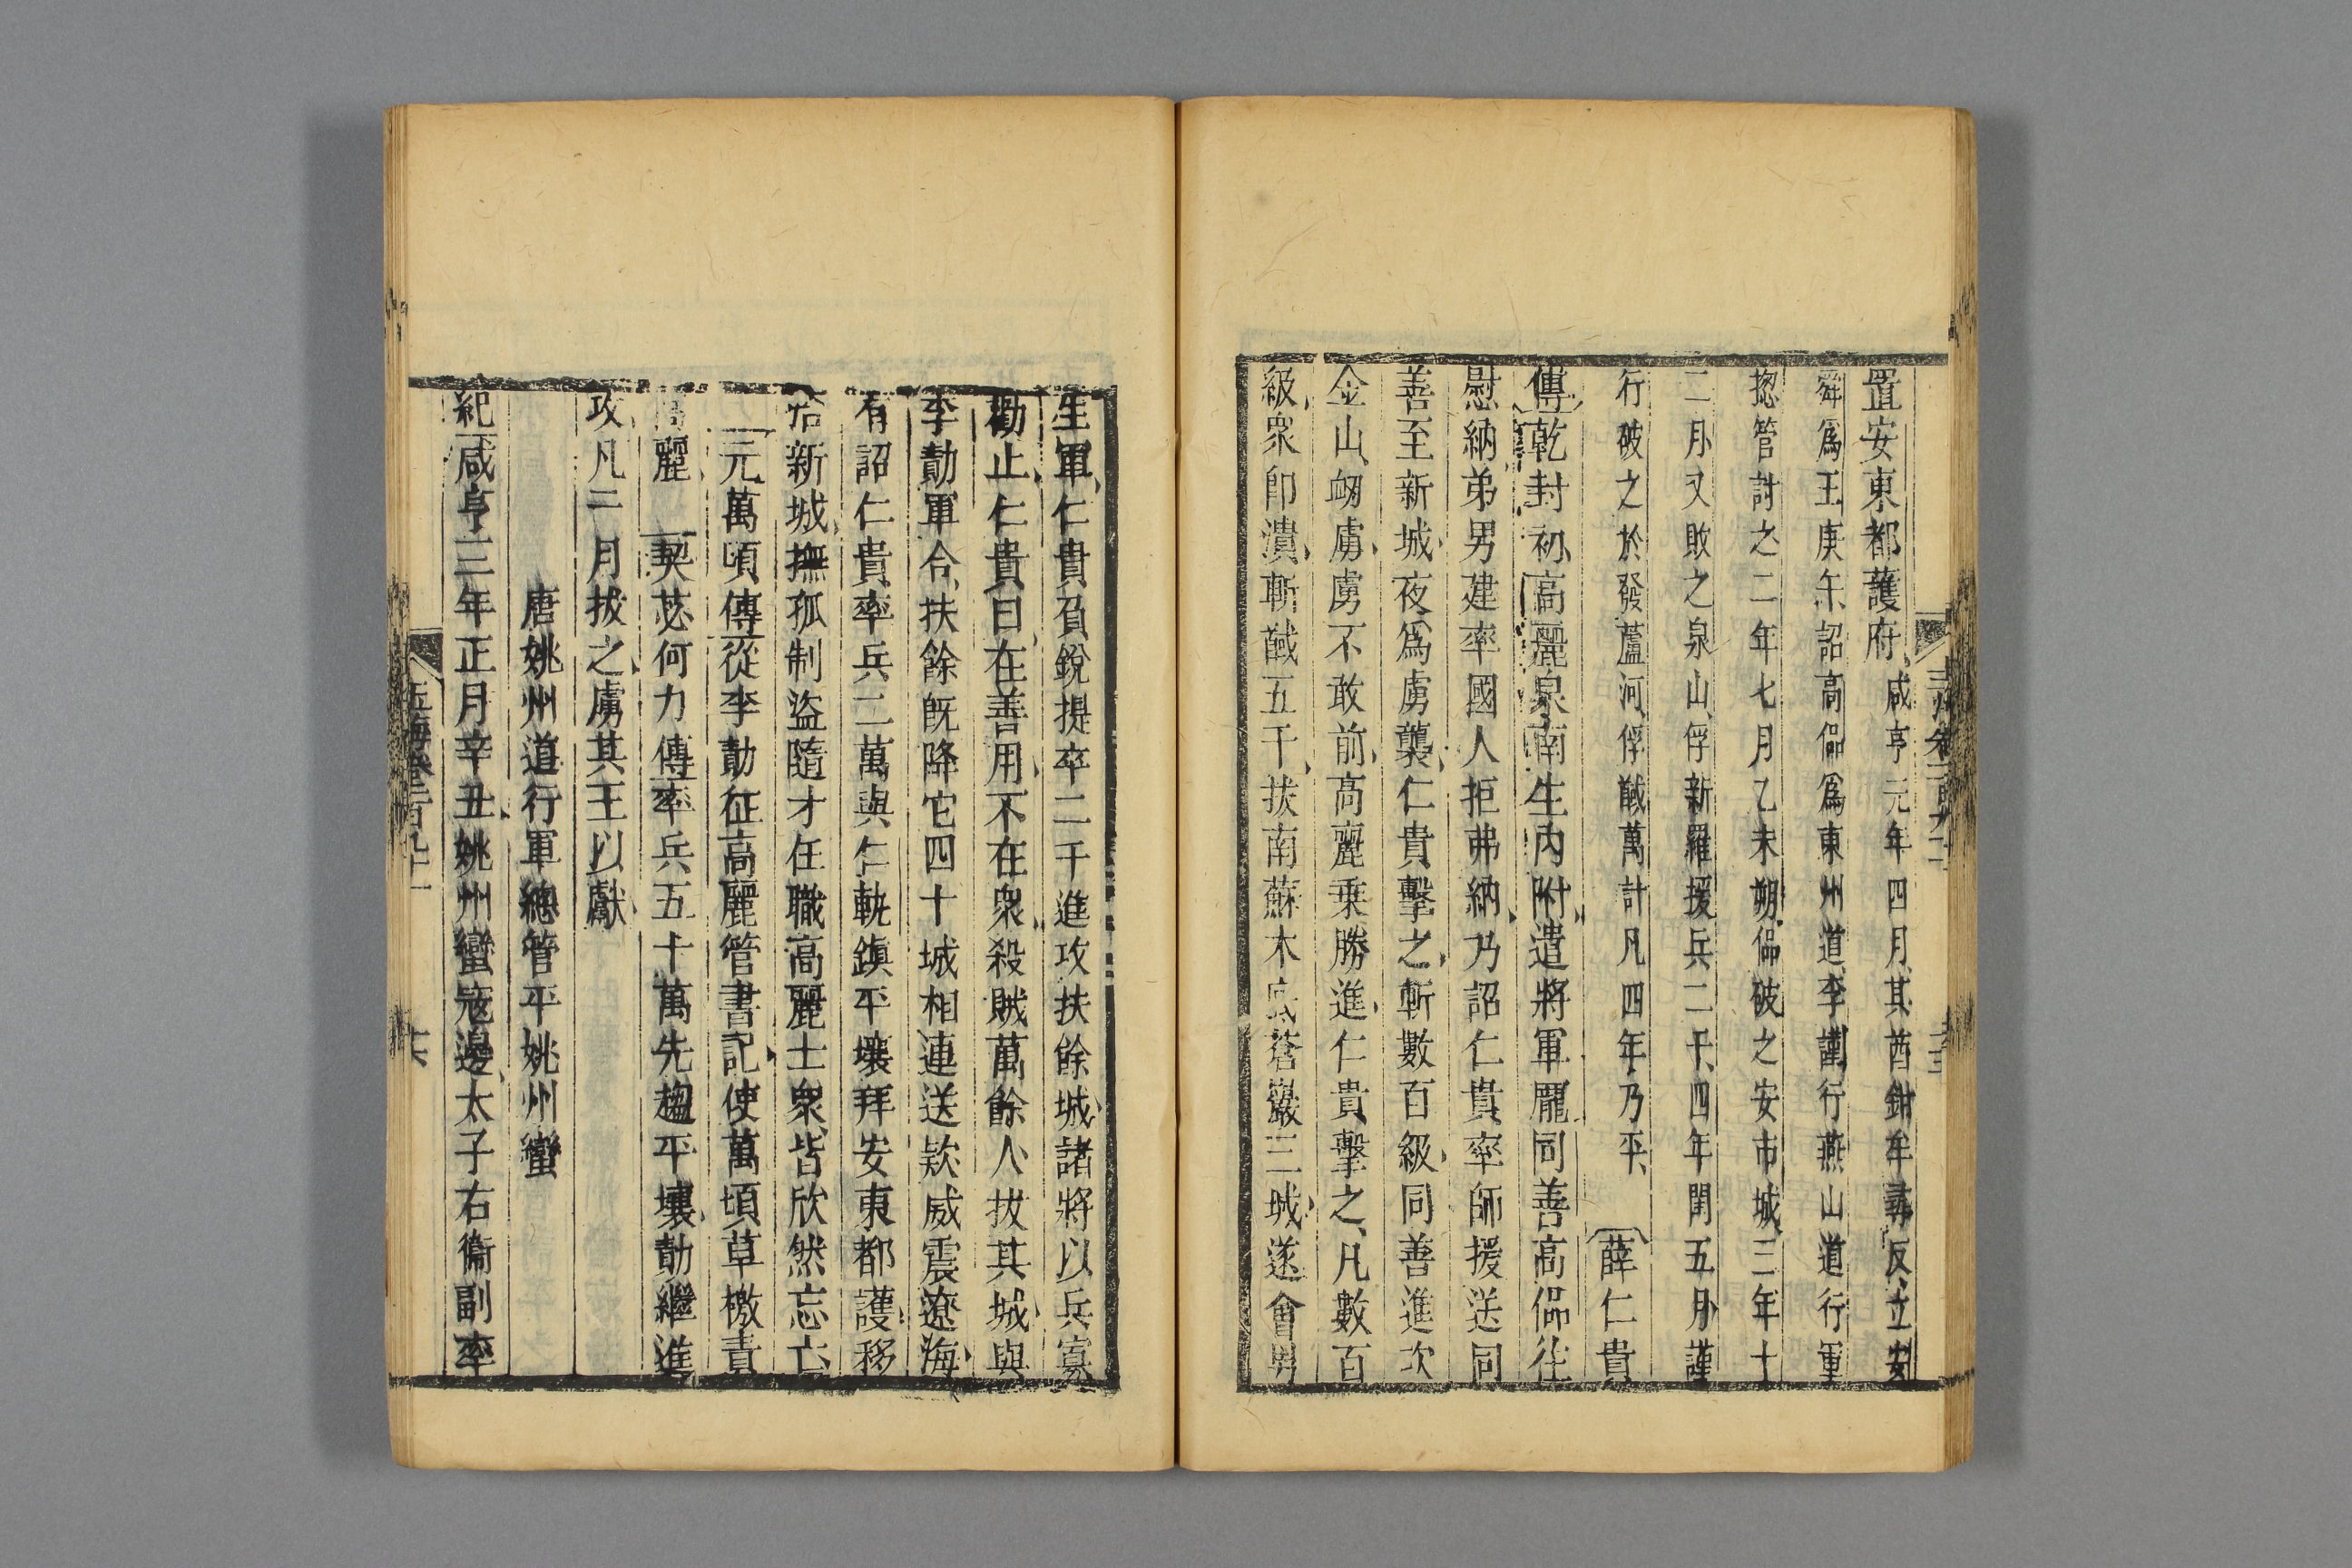 置安東都護府咸亨元年四月其酋鉗牟㝷反立安
舜爲王庚午詔高偘爲東州道李謹行燕山道行軍
揔管討之二年七月乙未朔偘破之安市城三年十
二月又敗之泉山俘新羅援兵二千四年閏五月謹
行破之於發蘆河俘馘萬計凡四年乃平薛仁貴
傳乾封初高麗泉南生內附遣將軍龎同善高偘往
慰納弟男建率國人拒弗納乃詔仁貴率師援送同
善至新城夜爲虜襲仁貴擊之斬數百級同善進次
金山衂虜虜不敢前高麗乗勝進仁貴擊之凡數百
級衆卽潰斬馘五千拔南蘇木底蒼巖三城遂會男
生軍仁貴負銳提卒二千進攻扶餘城諸將以兵寡
勸止仁貴曰在善用不在衆殺賊萬餘人拔其城與
李勣軍合扶餘既降它四十城相連送款威震遼海
有詔仁貴率兵二萬與仁軌鎮平壤拜安東都護移
治新城撫孤制盜隨才任職高麗士衆皆欣然忘亡
元萬頃傳從李勣征高麗管書記使萬頃草檄責
高麗 契苾何力傳率兵五十萬先趨平壤勣繼進
攻凡二月拔之虜其王以獻
唐姚州道行軍總管平姚州蠻
紀咸亨三年正月辛丑姚州蠻寇邊太子右衞副率
玉海卷一百九十一